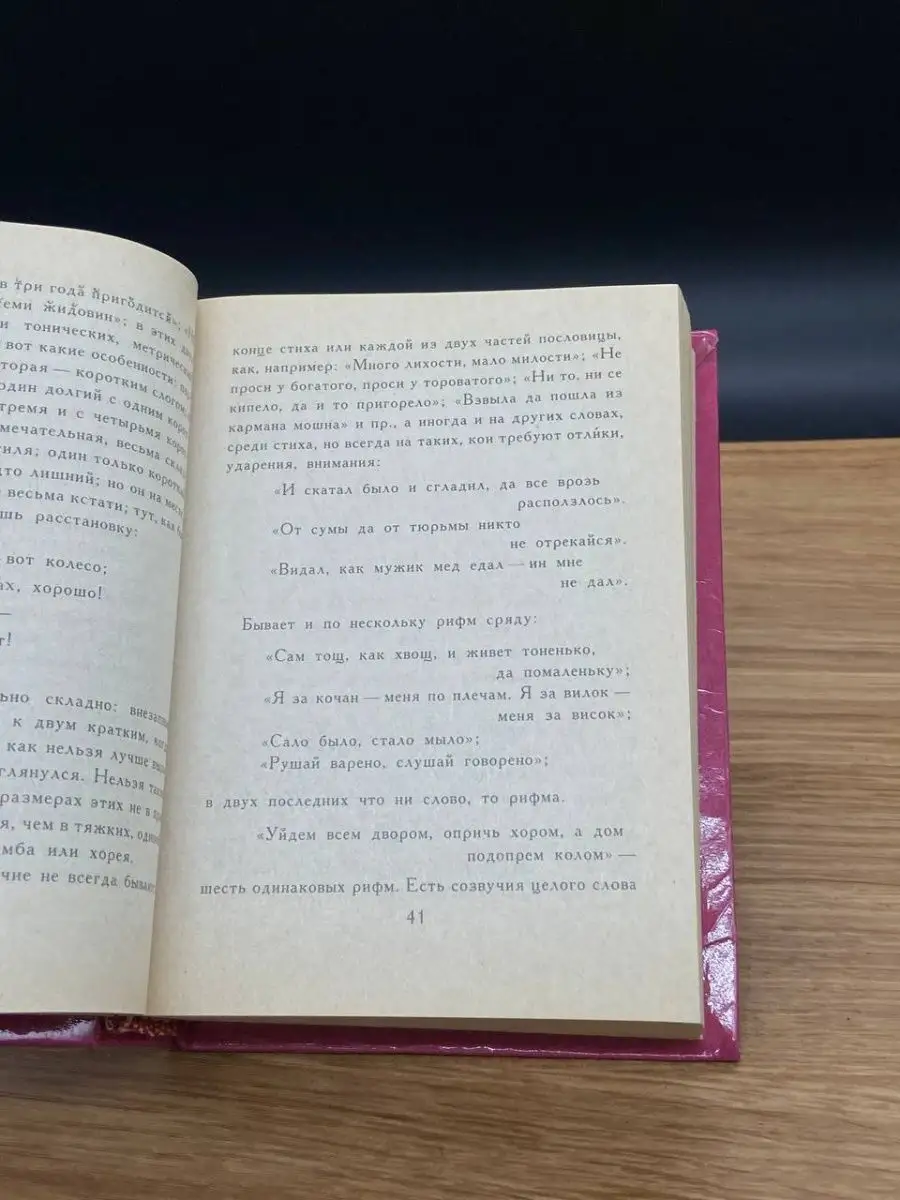 в три года пригодится»;
жидовин»; в этих
и тонических,
вот какие особенности:
коротким слогом
один долгий с одним
тремя и с четырьмя
весьма
один только
лишний; но он на
весьма кстати; тут, как
расстановку:
вот колесо;
хорошо!
—
складно:
к двум кратким,
как нельзя лучше
Нельзя
размерах этих не в
чем в тяжких,
или хорея.
не всегда
конце стиха или каждой из двух частей пословицы,
как, например: «Много лихости, мало милости»; «Не
проси у богатого, проси у тороватого»; «Ни то, ни се
кипело, да и то пригорело»; «Взвыла да пошла из
кармана мошна» и пр., а иногда и на других словах,
среди стиха, но всегда на таких, кои требуют отли́ки,
ударения, внимания:
«И скатал было и сгладил, да все врозь
расползлось».
«От сумы да от тюрьмы никто
не отрекайся».
«Видал, как мужик мед едал — ин мне
не дал».
Бывает и по нескольку рифм сряду:
«Сам тощ, как хвощ, и живет тоненько,
да помаленьку»;
«Я за кочан — меня по плечам. Я за вилок —
меня за висок»;
«Сало было, стало мыло»;
«Рушай варено, слушай говорено»;
в двух последних что ни слово, то рифма.
«Уйдем всем двором, опричь хором, а дом
подопрем колом» —
шесть одинаковых рифм. Есть созвучия целого слова
41